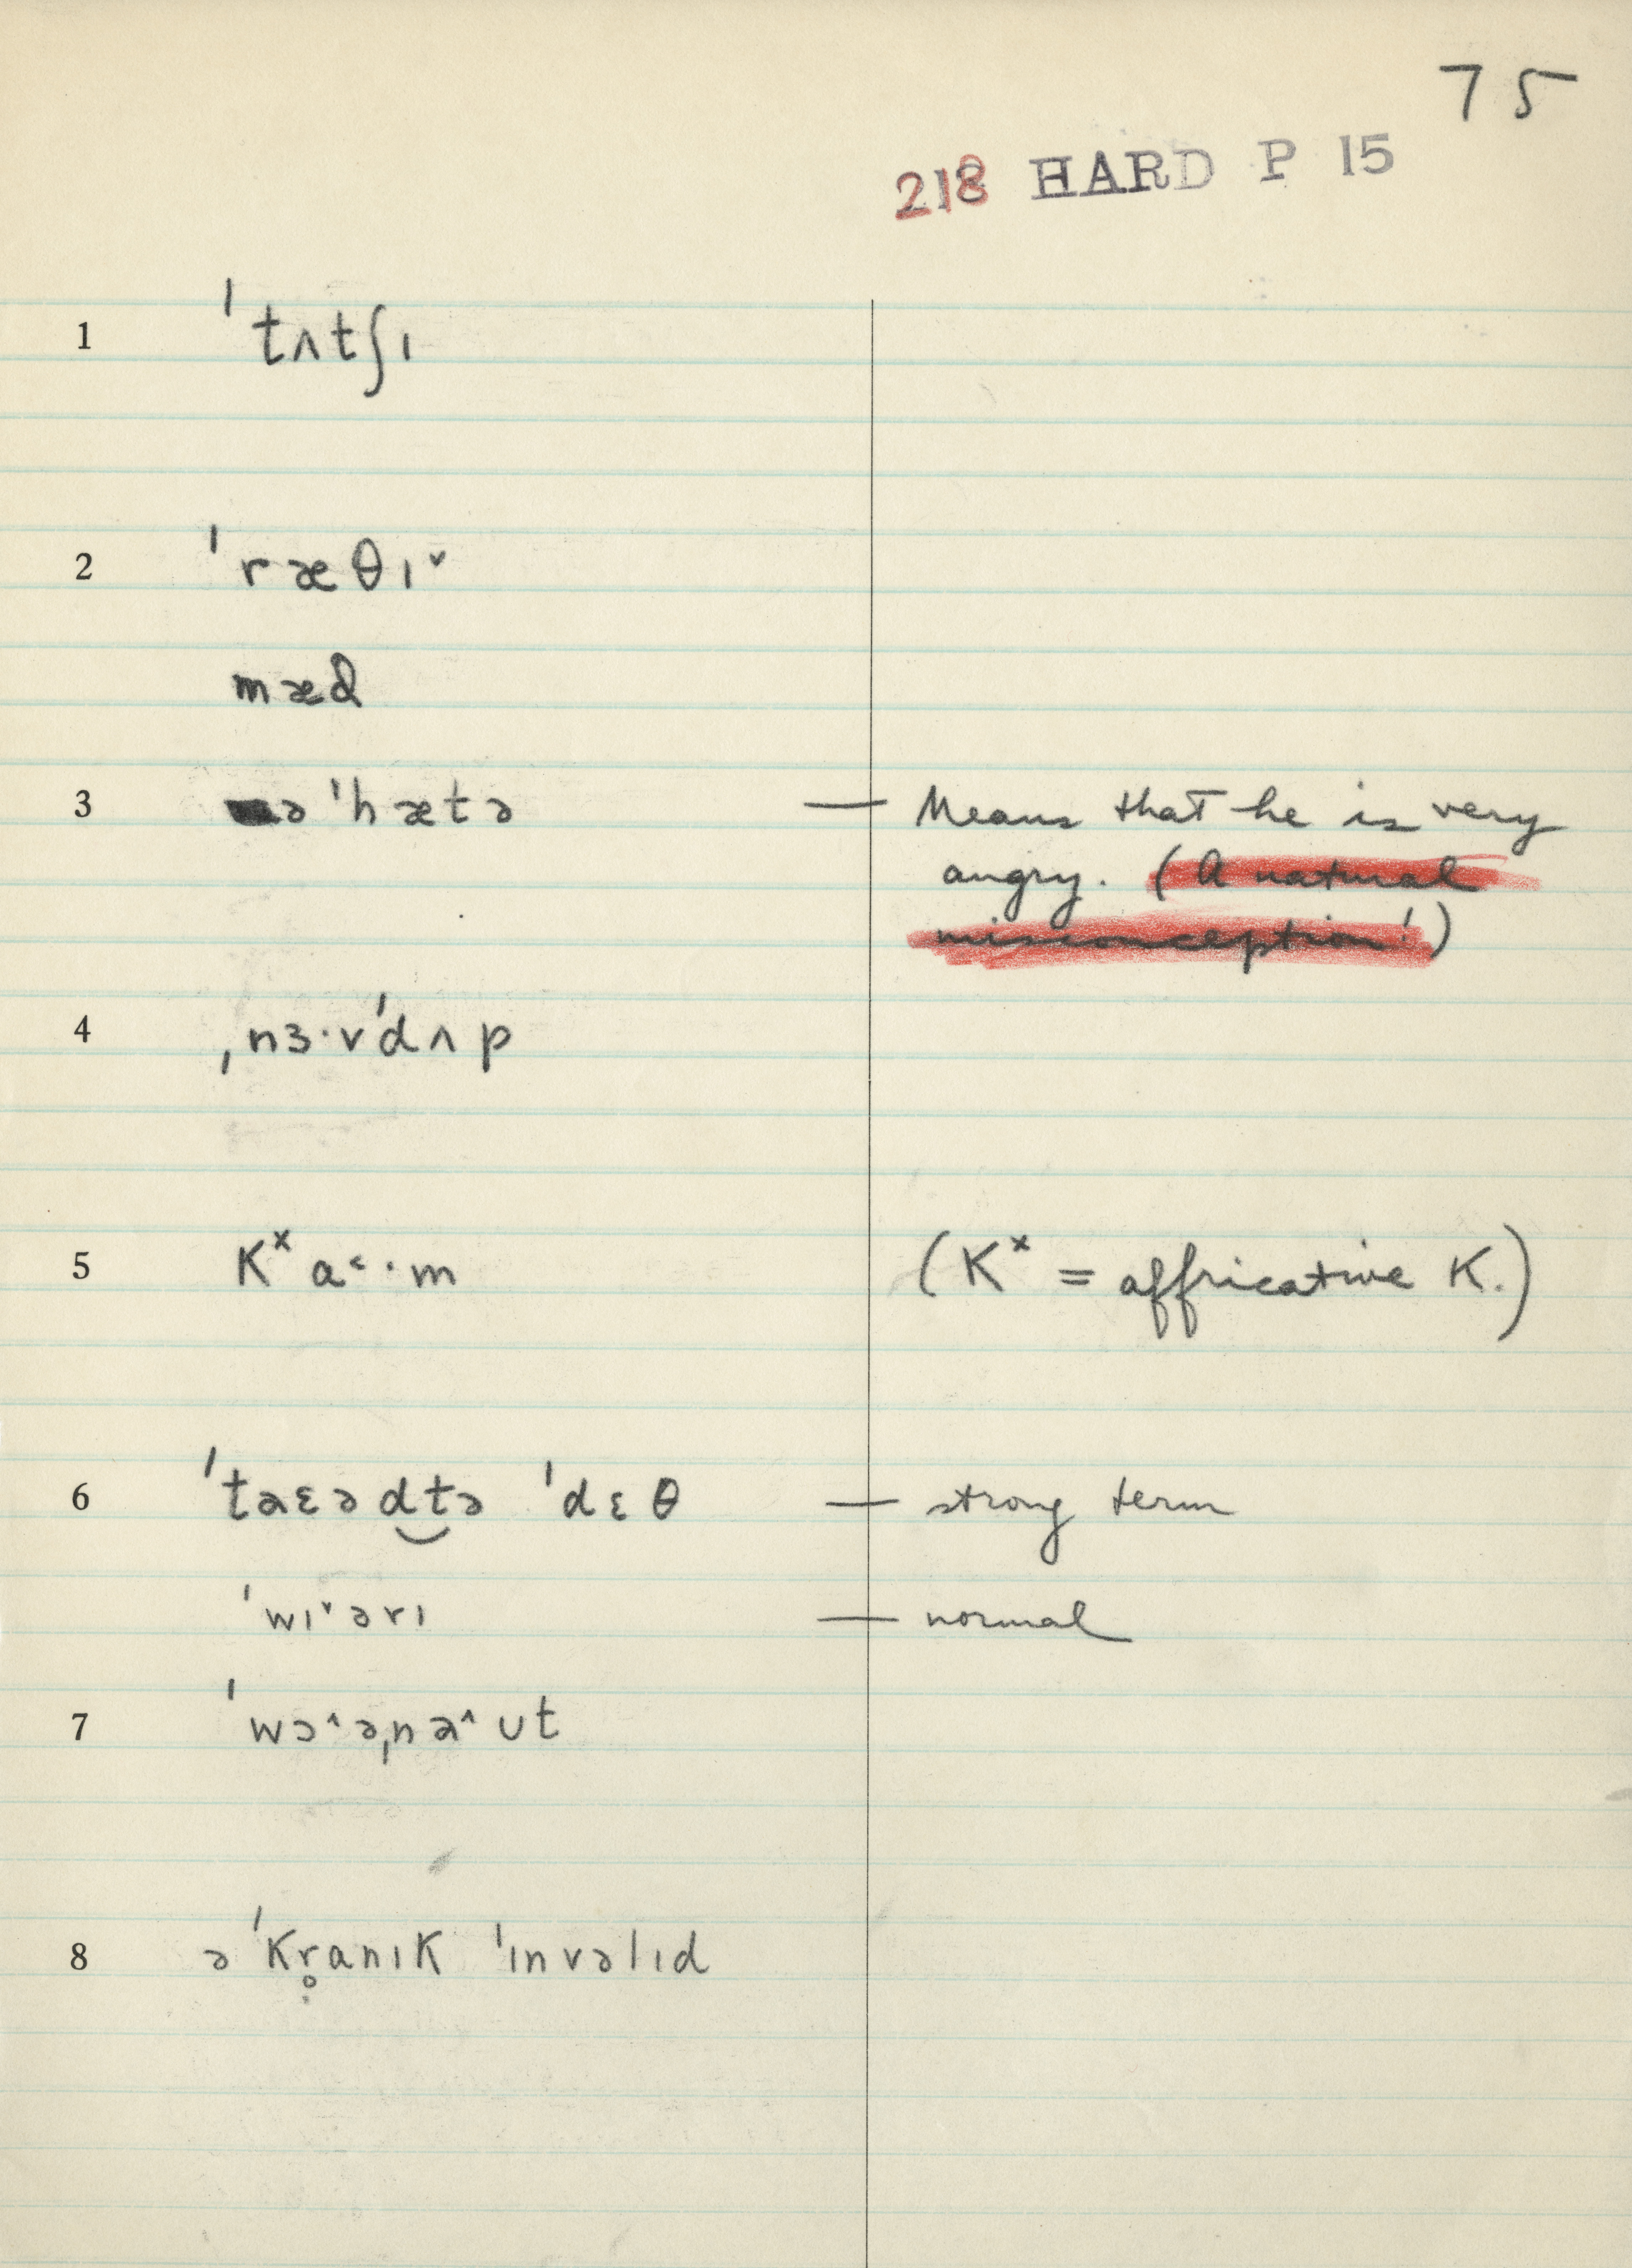 75
218 HARD P 15
1 ˈtʌtʃɪ
2 ˈræθɪ˅
mæd
3 ə ˈhætə — Means that he is very
angry. (A natural
misconception!)
4 ˌnɜ·vˈdʌp
5 Kˣa˂·m (Kˣ = affricative K.)
6 ˈtaɛəd‿tə ˈdɛθ — strong term
ˈwɪ˅ərɪ — normal
7 ˈwɔ˄əˌna˄ʊt
8 ə ˈKr̥anɪK ˈɪnvəlɪd